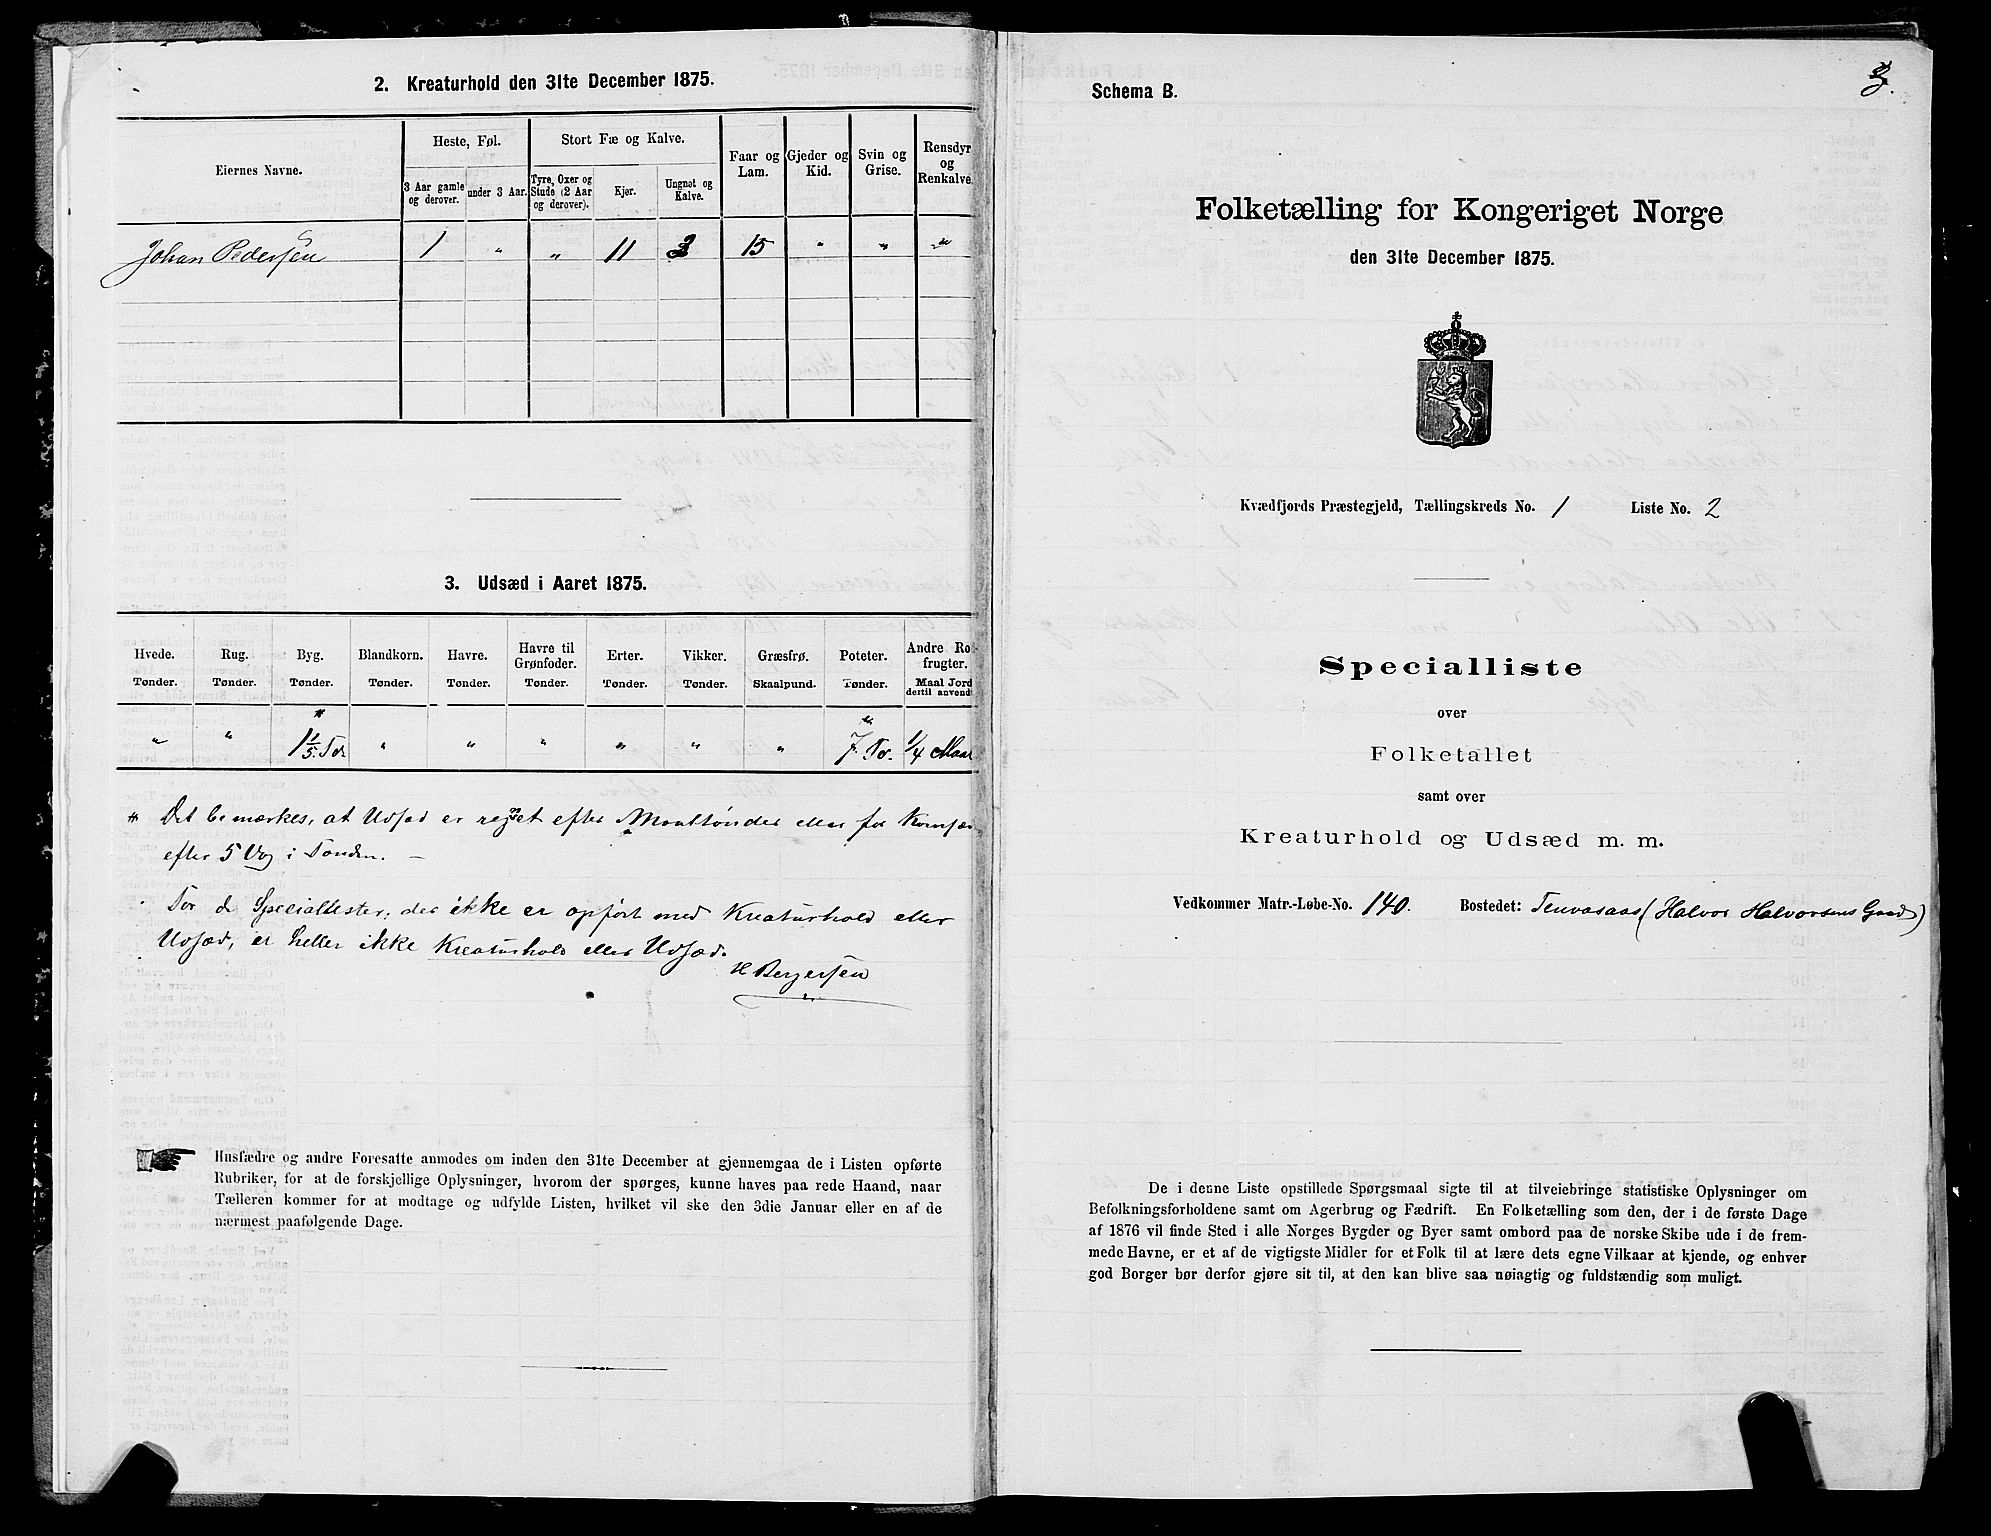 2. Kreaturhold den 31te December 1875.
Eiernes Navne.
Heste, Føl.
3 Aar gamle og derover.
under 3 Aar.
Stort Fæ og Kalve.
Tyre, Oxer og Stude (2 Aar og derover).
Kjør.
Ungnøt og Kalve.
Faar og Lam.
Gjeder og Kid.
Svin og Grise.
Rensdyr og Renkalve.
Johan Pedersen 1 " " 11 3 15 " " "
3. Udsæd i Aaret 1875.
Hvede. Rug. Byg. Blandkorn. Havre. Havre til Grønfoder. Erter. Vikker. Græsfrø. Poteter. Andre Ro frugter.
Tønder. Tønder. Tønder. Tønder. Tønder. Tønder. Tønder. Tønder. Skaalpund. Tønder. Maal Jord dertil anvend
" " 1 1/5 Tdr " " " " " " 7. Tr. 1/4 Maa
Det bemærkes, at Udsæd er regnet efter Maaltønder eller for Kornsæ
efter 5 Vog i Tønden. —
For de Speciallister, der ikke er opført med Kreaturhold eller
Udsæd, er heller ikke Kreaturhold eller Udsæd.
H Bergersen
Husfædre og andre Foresatte anmodes om inden den 31te December at gjennemgaa de i Listen opførte
Rubriker, for at de forskjellige Oplysninger, hvorom der spørges, kunne haves paa rede Haand, naar
Tælleren kommer for at modtage og udfylde Listen, hvilket vil ske den 3die Januar eller en af de
nærmest paafølgende Dage.
Schema B.
Folketælling for Kongeriget Norge
den 31te December 1875.
Kvædfjords Præstegjeld, Tællingskreds No. 1 Liste No. 2
Specialliste
over
Folketallet
samt over
Kreaturhold og Udsæd m. m.
Vedkommer Matr.-Løbe-No. 140. Bostedet: Tenvasaas (Halvor Halvorsens Gaard)
De i denne Liste opstillede Spørgsmaal sigte til at tilveiebringe statistiske Oplysninger om
Befolkningsforholdene samt om Agerbrug og Fædrift. En Folketælling som den, der i de første Dage
af 1876 vil finde Sted i alle Norges Bygder og Byer samt ombord paa de norske Skibe ude i de frem-
mede Havne, er et af de vigtigste Midler for et Folk til at lære dets egne Vilkaar at kjende, og enhver
god Borger bør derfor gjøre sit til, at den kan blive saa nøiagtig og fuldstændig som muligt.